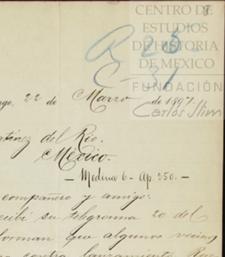 CENTRO DE
ESTUDIOS
DE HISTORIA
DE MEXICO
FUNDACIÓN
Carlos Slim
R 25
31
go, 22 de Marzo de 1997
tinez del Rio.
Mexico.
- Medina 6 - Ap. 250. -
compañero y amigo:
cibí su telegrama 20 del
forman que algunos vecin